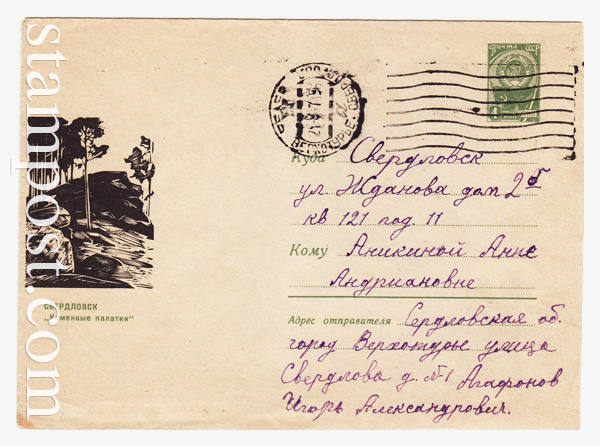 Почта СССР
ВЕРХОТУРЬЕ
Куда Свердловск
ул. Жданова дом 2б
кв 121 под. 11
Кому Аникиной Анне
Андриановне
СВЕРДЛОВСК
„Каменные палатки“
Адрес отправителя Сердловская об.
город Верхотурье улица
Свердлова д. №1 Агафонов
Игорь Александрович.
stampost.com